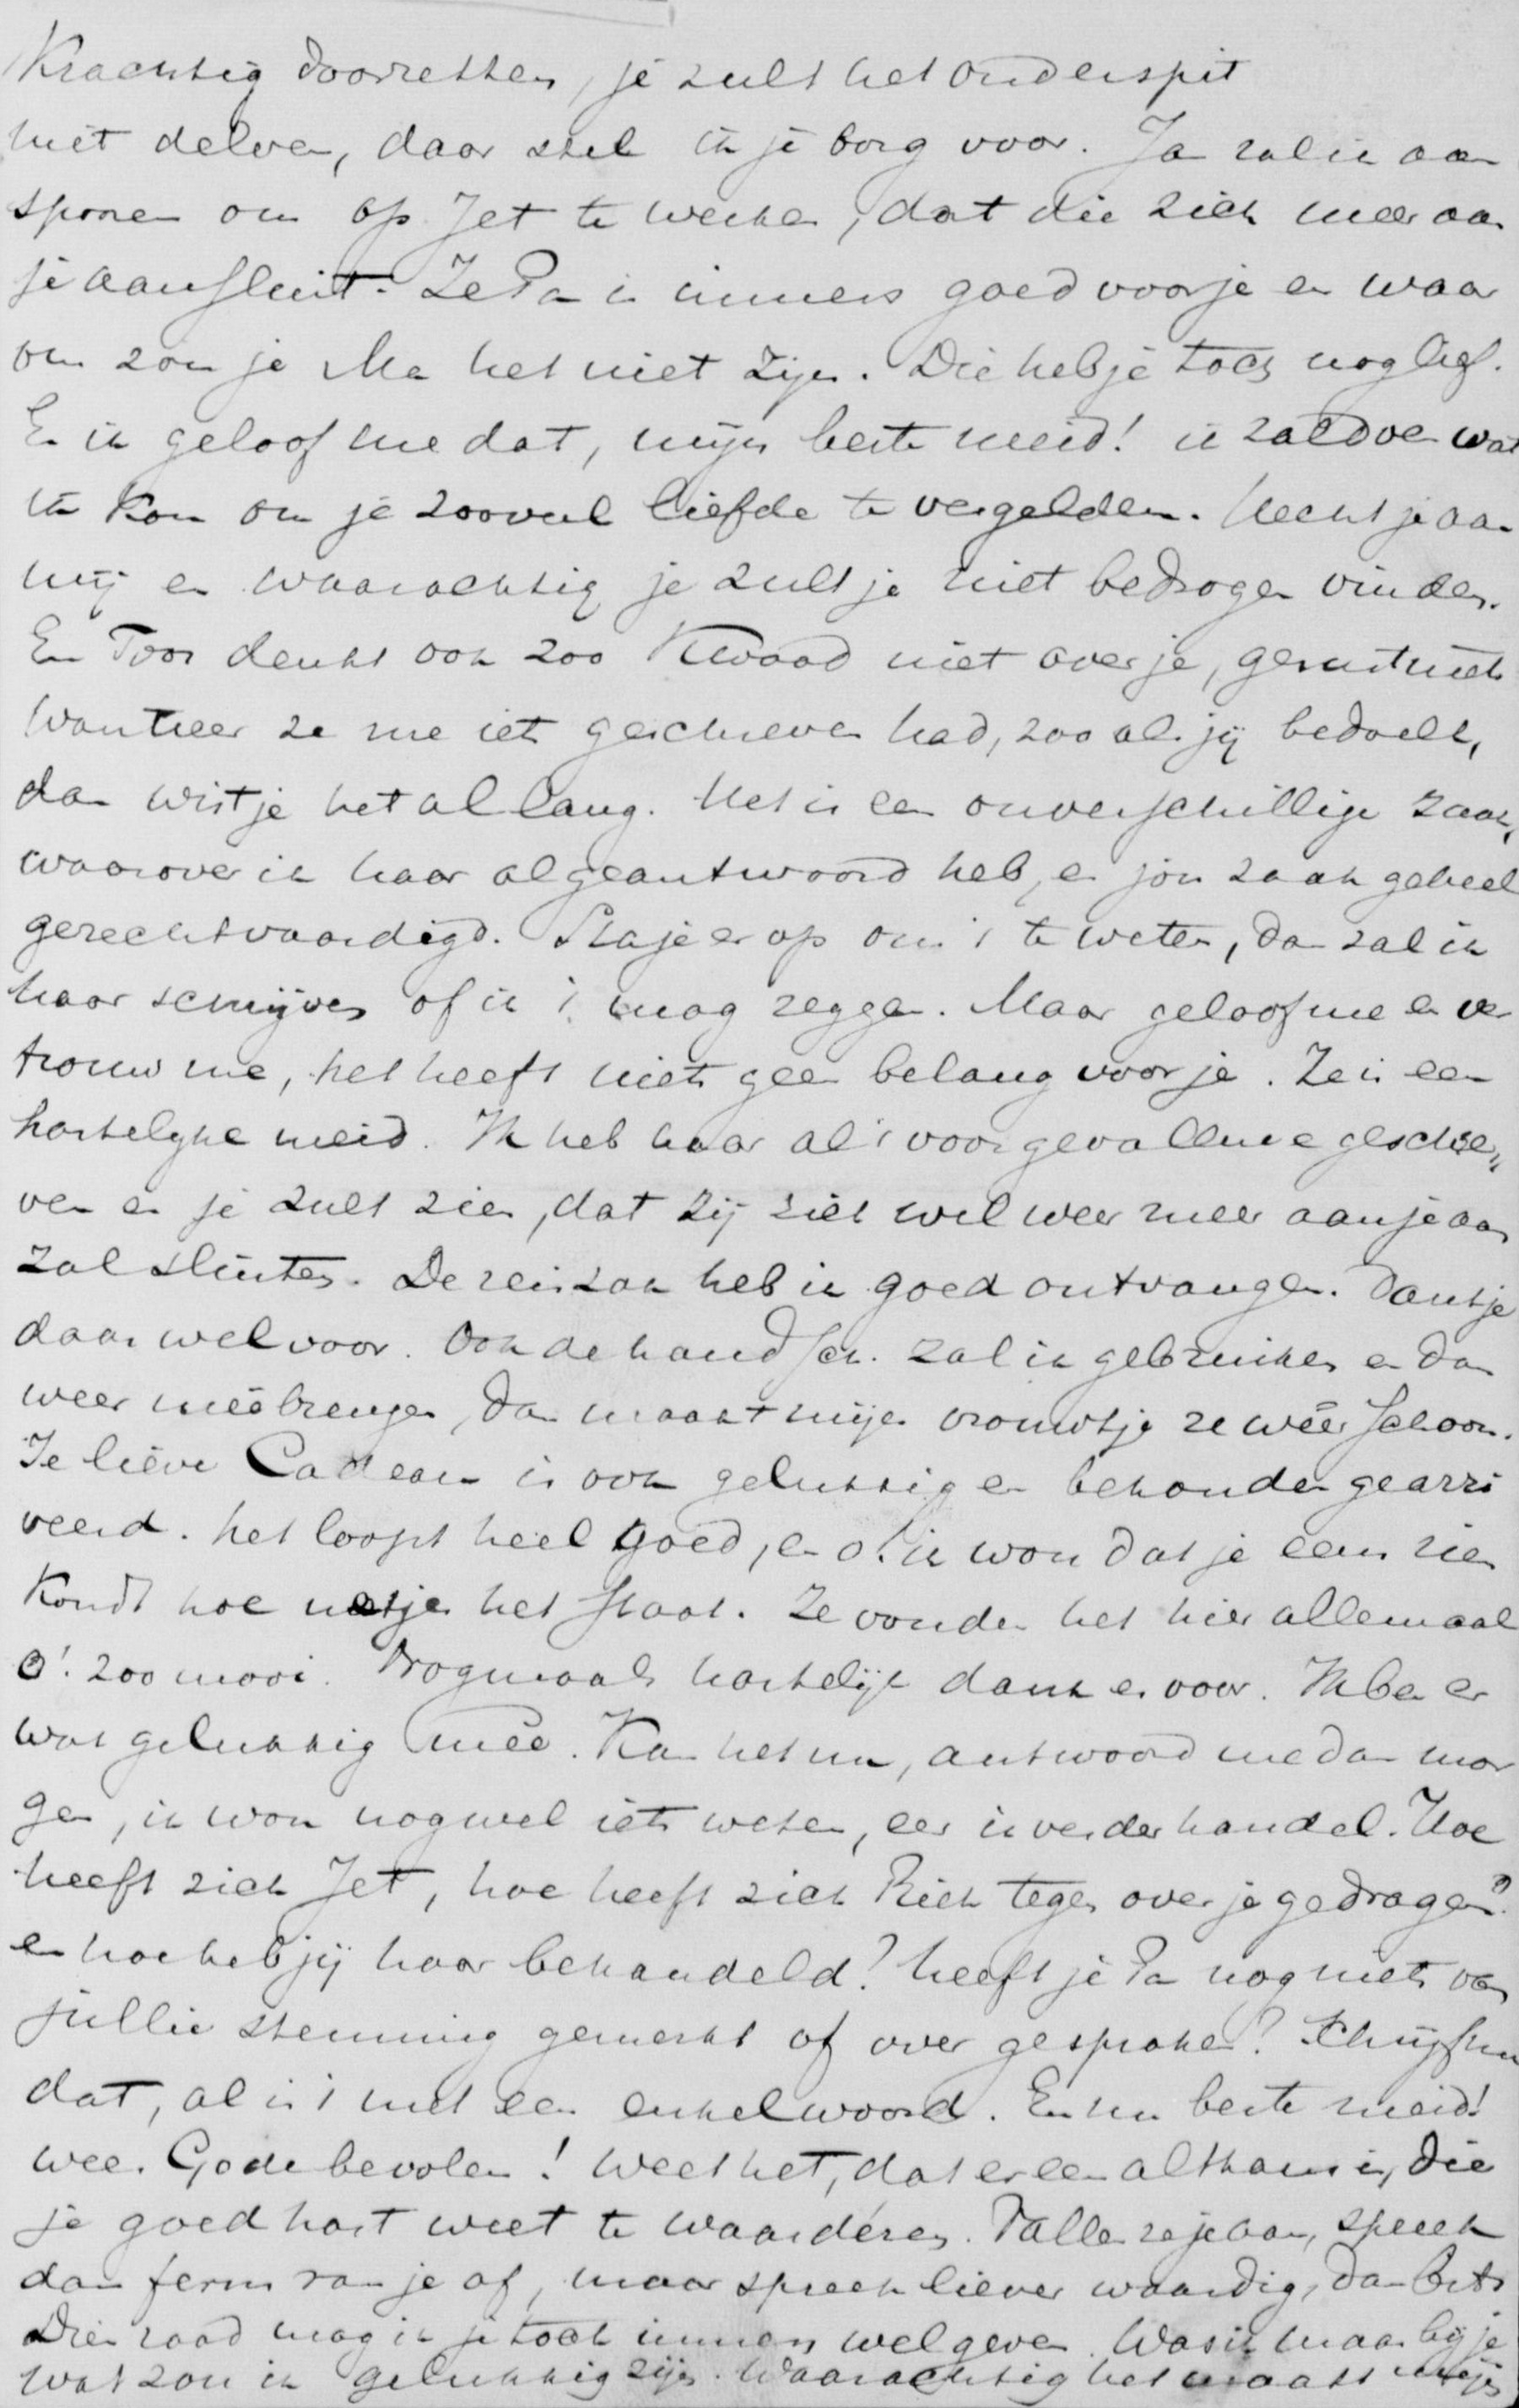 Krachtig doorzetten, je zult het onderspit
niet delven, daar stel ik je borg voor. Ja zal ik aan
sporen om op Jet te werken, dat die zich meer aan
je aansluit. Je Pa is immers goed voor je en waar
om zou je Ma het niet zijn. Die heb je toch nog lief.
En ik geloof me dat, mijn beste meid! ik zal doen wat
ik kan om je zooveel liefde te vergelden. Hecht je aan
mij en waarachtig je zult je niet bedrogen vinden.
En Toos denkt ook zoo kwaad niet over je, gerust niet
Wanneer ze me iets geschreven had, zoo als jij bedoelt,
dan wist je het al lang. Het is een onverschillige zaak,
waarover ik haar al geantwoord heb, en jou zaak geheel
gerechtvaardigd. Sta je er op om 't te weten, dan zal ik
haar schrijven of ik 't mag zeggen. Maar geloof me en ver
trouw me, het heeft niets geen belang voor je. Ze is een
hartelyke meid. Ik heb haar al 't voorgevallene geschre„
ven en je zult zien, dat zij zich wel weer meer aan je aan
zal sluiten. De reiszak heb ik goed ontvangen. Dank je
daar wel voor. Ook de handsch. zal ik gebruiken en dan
weer meêbrengen, dan maakt mijn vrouwtje ze weêr schoon.
Je lieve Cadeau is ook gelukkig en behouden gearri
veerd. het loopt heel goed, en o! ik wou dat je eens zien
kondt hoe netjes het staat. Ze vonden het hier allemaal
o! zoo mooi. Nogmaals hartelijk dank er voor. Ik ben er
wat gelukkig meê. Kan het nu, antwoord me dan mor
gen, ik wou nog wel iets weten, eer ik verder handel. Hoe
heeft zich Jet, hoe heeft zich Riek tegen over je gedragen?
en hoe heb jij haar behandeld? heeft je Pa nog niets van
jullie stemming gemerkt of over gesproken? Schrijf me
dat, al is 't met een enkel woord. En nu beste meid!
wees Gode bevolen! Weet het, dat er een althans is, die
je goed hart weet te waardéren. Vallen ze je aan, spreek
dan ferm van je af, maar spreek liever waardig, dan bits
Dien raad mag ik je toch immers wel geven. Was ik maar bij je
wat zou ik gelukkig zijn. Waarachtig het maakt mijn